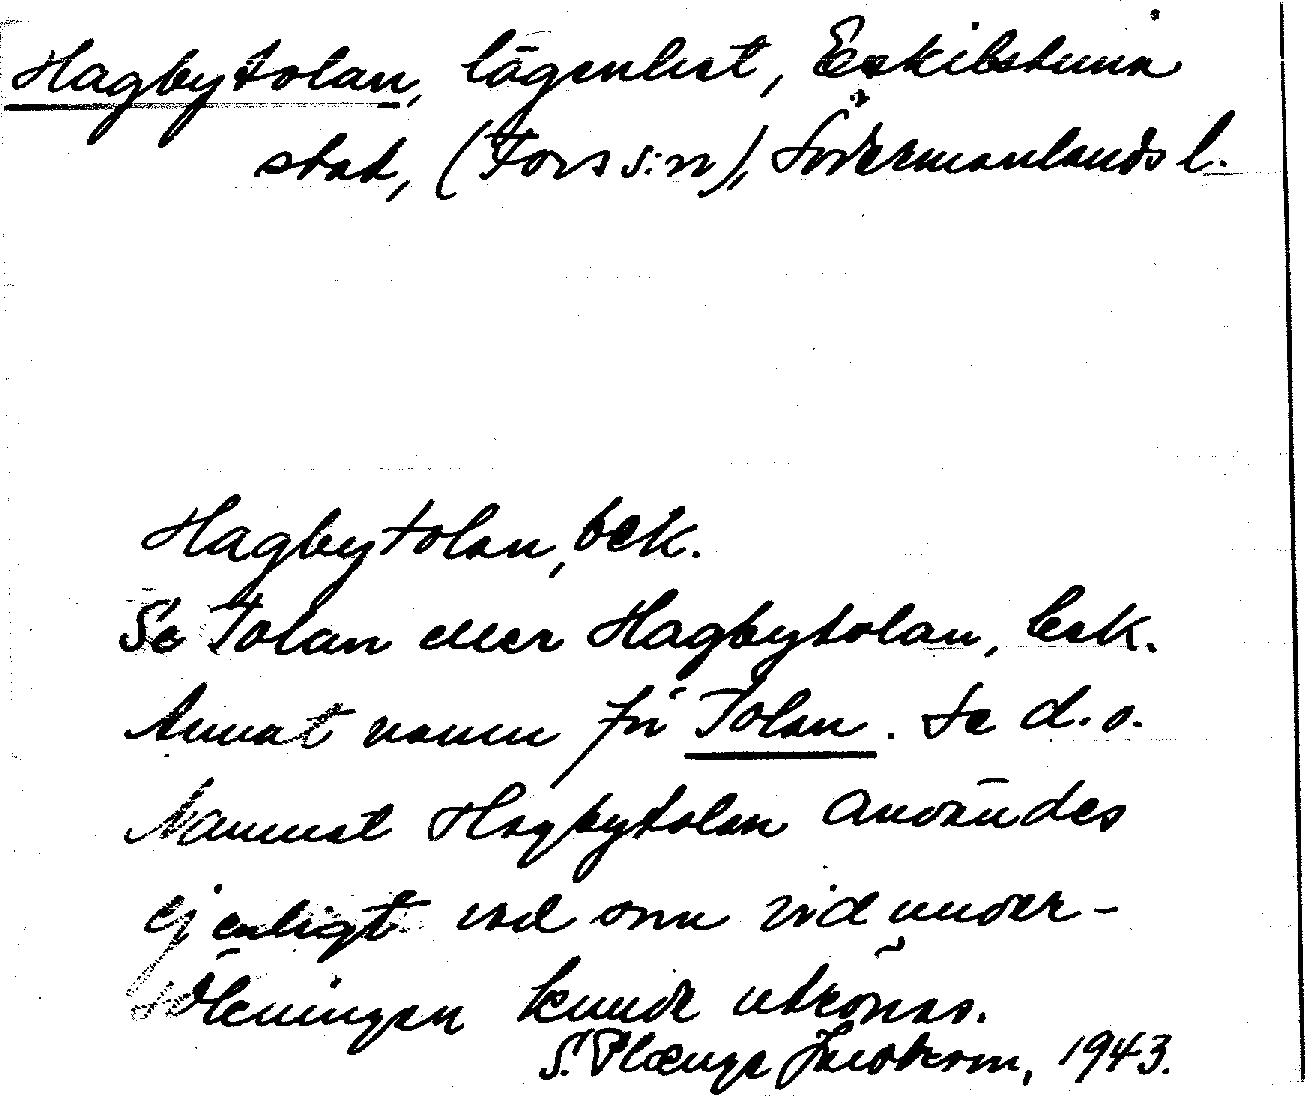 Hagbytolan, lägenhet, Eskilstuna
stad, (Fors s:n), Södermanlands l.
Hagbytolan, bek.
Se Tolan eller Hagbytolan, bek.
Annat namn för Tolan. Se d.o.
Namnet Hagbytolan användes
ej enligt vad som vid under-
sökningen kunde utrönas.
S. Plænge Jacobson, 1943.